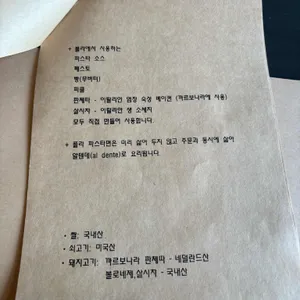 * 폴라에서 사용하는
파스타 소스
페스토
빵(무버터)
피클
판체타 - 이탈리안 염장 숙성 베이컨 (까르보나라에 사용)
살시챠 - 이탈리안 생 소세지
모두 직접 만들어 사용합니다
* 폴라 파스타면은 미리 삶아 두지 않고 주문과 동시에 삶아
알덴테(al dente)로 요리됩니다
• 쌀: 국내산
• 쇠고기: 미국산
• 돼지고기: 까르보나라 판체따 - 네덜란드산
볼로네제,살시챠 - 국내산